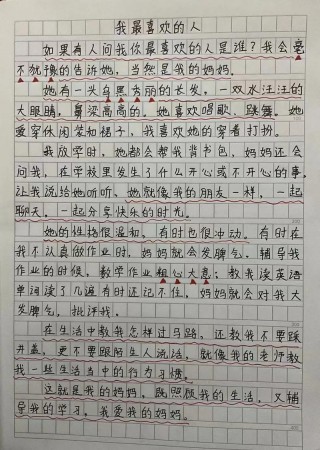 我最喜欢的人
如果有人问我你最喜欢的人是谁？我会毫
不犹豫的告诉她，当然是我的妈妈。
她有一头乌黑秀丽的长发，一双水汪汪的
大眼睛，鼻梁高高的。她喜欢唱歌，跳舞。她
爱穿休闲装和裙子，我喜欢她的穿着打扮。
我放学时，她都会帮我背书包，妈妈还会
问我，在学校里发生了什么开心或不开心的事，
让我说给她听听、她就像我的朋友一样，一起
聊天，一起分享快乐的时光。
她的性格很温和，有时也很冲动。有时在
我不认真做作业时，妈妈就会发脾气，辅导我
作业的时候，数学作业粗心大意；教我读英语
单词读了几遍有时还记不住，妈妈就会对我大
发脾气，批评我。
在生活中教我怎样过马路，还教我不要踩
井盖，更不要跟陌生人说话，就像我的老师教
我一些生活当中的行为习惯。
这就是我的妈妈，既照顾我的生活，又辅
导我的学习，我爱我的妈妈。